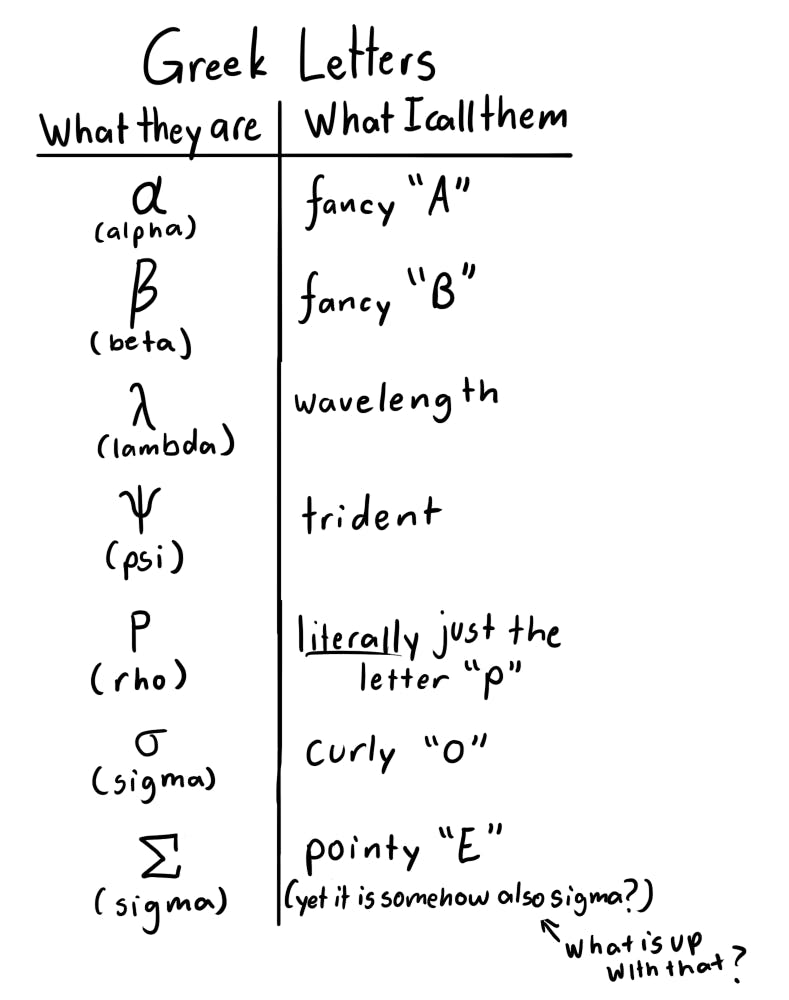 Greek Letters
What they are What I call them
α fancy “A”
(alpha)
β fancy “B”
(beta)
λ wavelength
(lambda)
Ψ trident
(psi)
ρ literally just the
(rho) letter “p”
σ curly “O”
(sigma)
Σ pointy “E”
(sigma) (yet it is somehow also sigma?)
what is up
with that?